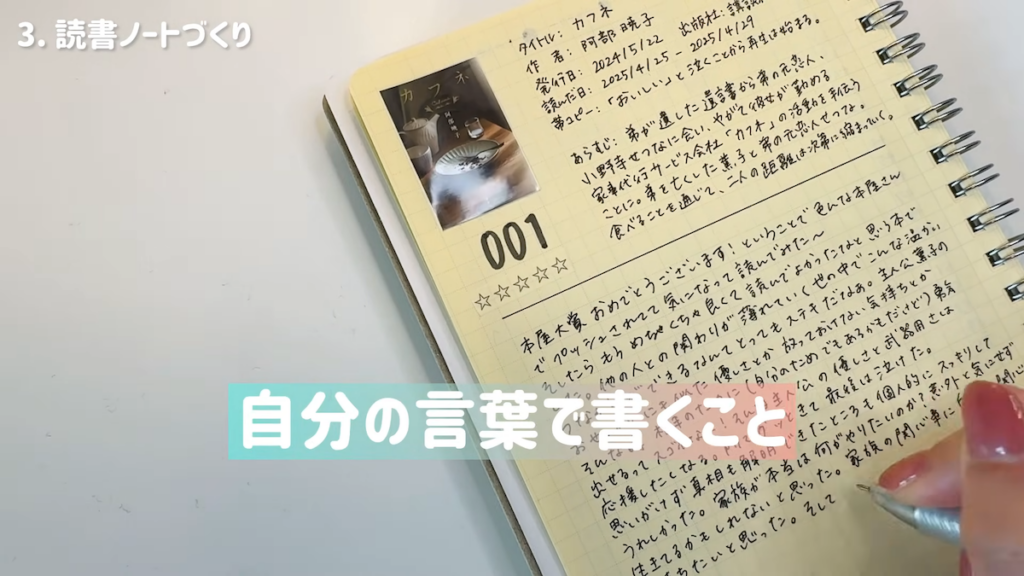 3. 読書ノートづくり
タイトル: カフネ
作者: 阿部暁子 出版社: 講談
発行日: 2024/5/22
読んだ日: 2025/4/25 - 2025/4/29
帯コピー: 「おいしい」と泣くことから再生は始まる。
あらすじ: 弟が遺した遺言書から弟の元恋人、
小野寺せつなに会い、やがて彼女が勤める
家事代行サービス会社「カフネ」の活動を手伝う
ことに。弟を亡くした薫子と弟の元恋人せつな。
食べることを通じて、二人の距離は次第に縮まっていく。
カフネ
001
☆☆☆☆☆
本屋大賞おめでとうございます！ということで色んな本屋さん
でプッシュされてて気になって読んでみた〜
そしたらもうめちゃくちゃ良くて読んでよかったなと思う本で
他の人との関わりが薄れていく世の中でこんな温かい
できるなんてとってもステキだなあ。主人公薫子の
優しさとか放っておけない気持ちとか
(自分のためでもあるかもだけど)勇
公の優しさと武器用さは
出せるって きて最後は泣けた。
応援したくなる。
思いがけず真相も解明できたところも個人的にスッキリして
うれしかった。家族が本当は何がやりたいのか？意外と気にせず
生きてるかもしれないと思った。家族の関心事に
ちたいと思った。そして
自分の言葉で書くこと